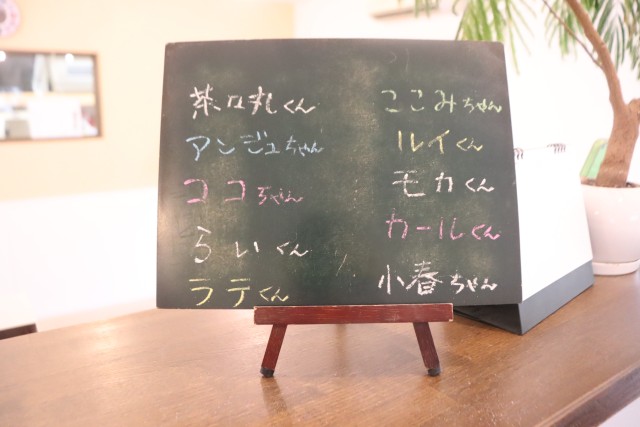 茶々丸くん
アンジュちゃん
ココちゃん
らいくん
ラテくん
ここみちゃん
ルイくん
モカくん
カールくん
小春ちゃん